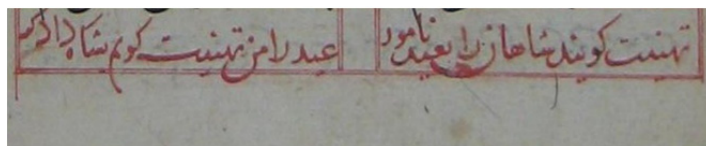 تهنیت کویند شاهان را بعید نامور
عید را من تهنیت کویم بشاه دادکر